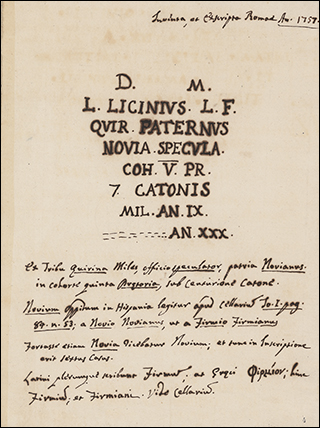 Inventa, et Excripta Romae An. 1757.
D. M.
L. LICINIVS. L. F.
QVIR. PATERNVS
NOVIA. SPECVLA.
COH. V. PR.
7. CATONIS
MIL. AN. IX.
AN. XXX.
Ex Tribu Quirina Miles officio speculator, patria Novianus
in cohorte quinta Pretoria, sub Centurione Catone.
Novium Oppidum in Hispania legitur apud Cellarium To. I. pag.
n. 53. a Novio Novianus ut a Firmio Firmianus
Fortasse etiam Novia dicebatur Novium, et tunc in Inscriptione
erit sextus Casus.
Latini plerumque scribunt Firmum, at Greci Φίρμιον, hinc
Firmium, et Firmiani. Vide Cellarium.